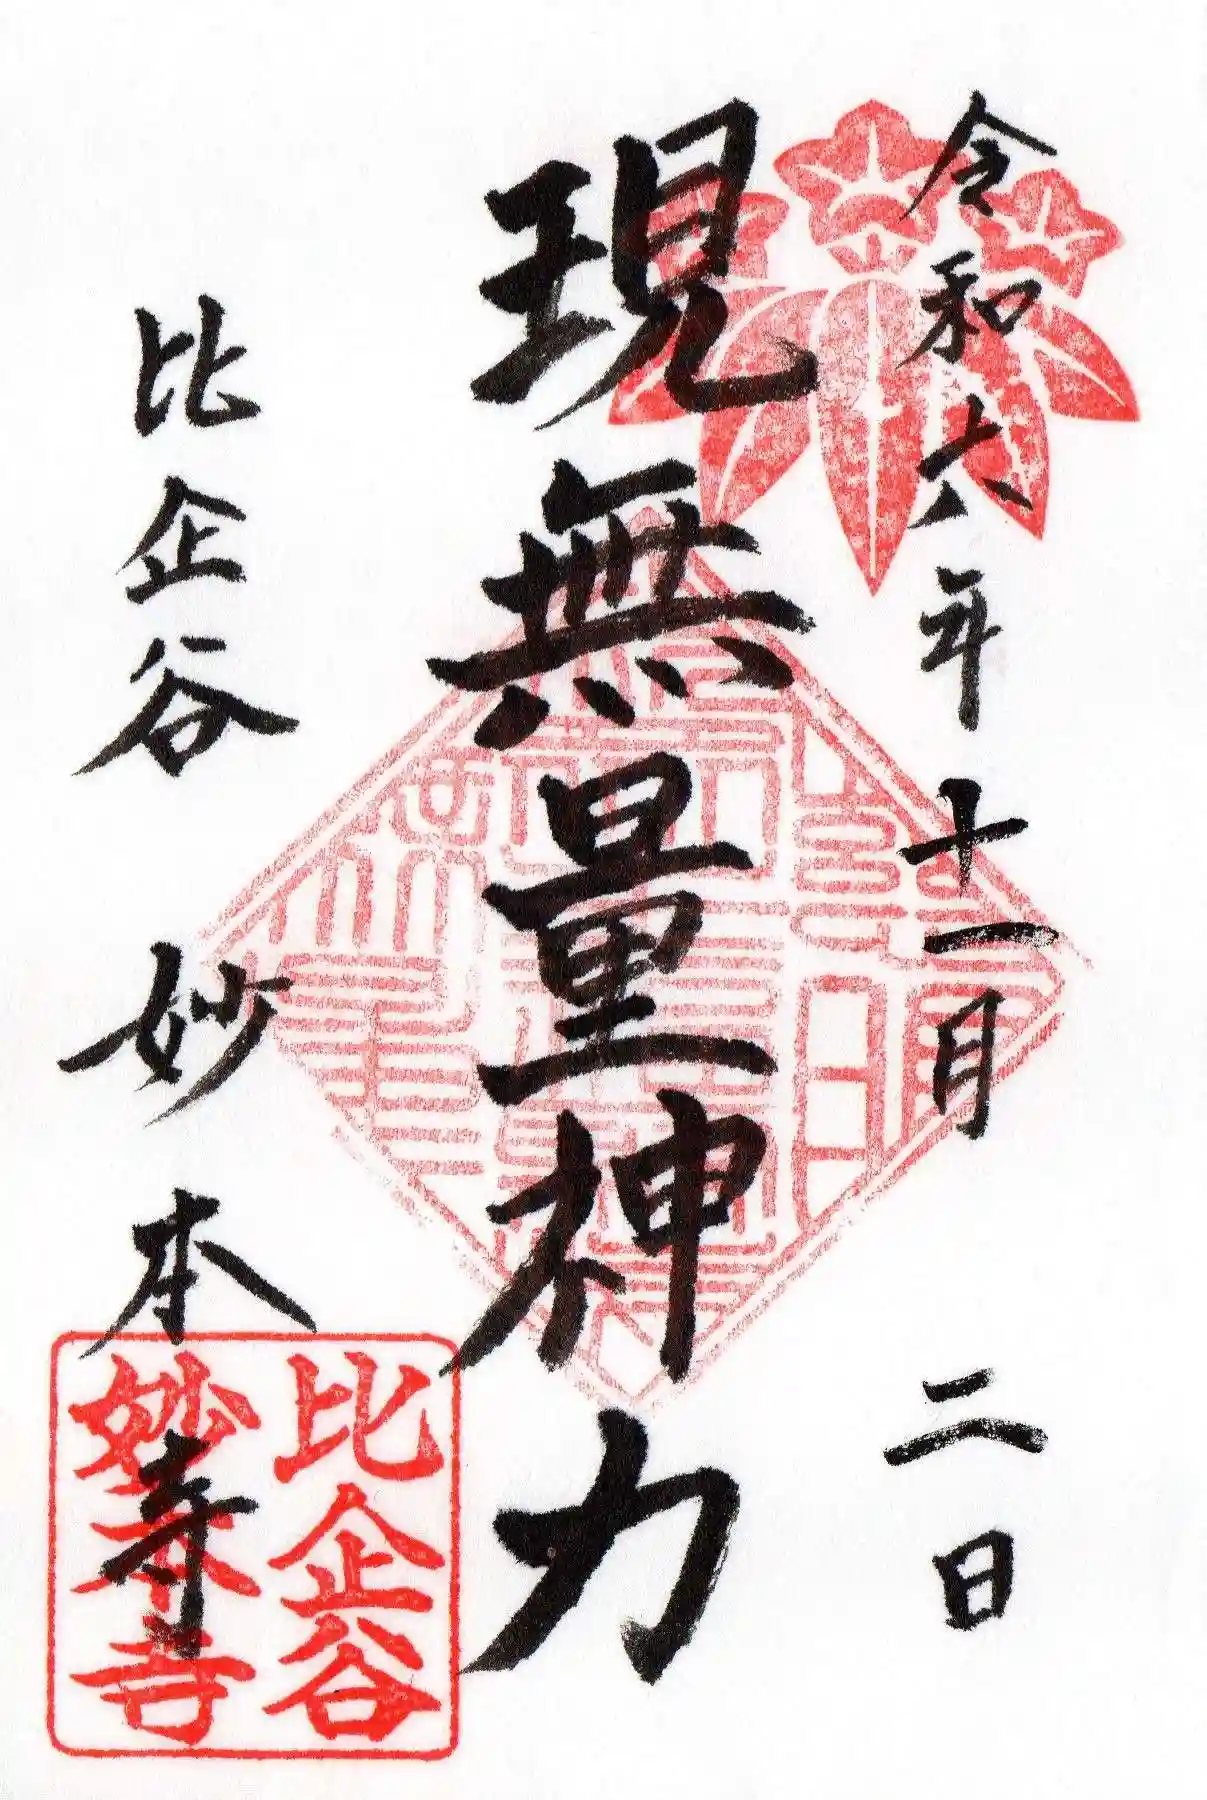 令和六年十一月二日
現無量神力
比企谷 妙本寺
比企谷
妙本寺